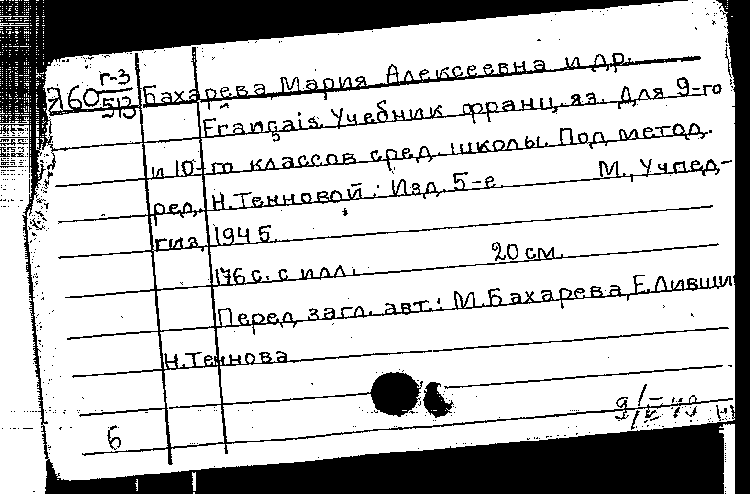 Я60 г-3/513 Бахарева, Мария Алексеевна и др.
Français. Учебник франц. яз. Для 9-го
и 10-го классов сред. школы. Под метод.
ред. Н. Тенновой. Изд. 5-е. М., Учпед-
гиз, 1945.
176 с. с илл. 20 см.
Перед загл. авт.: М. Бахарева, Е. Лившиц
Н. Теннова
6